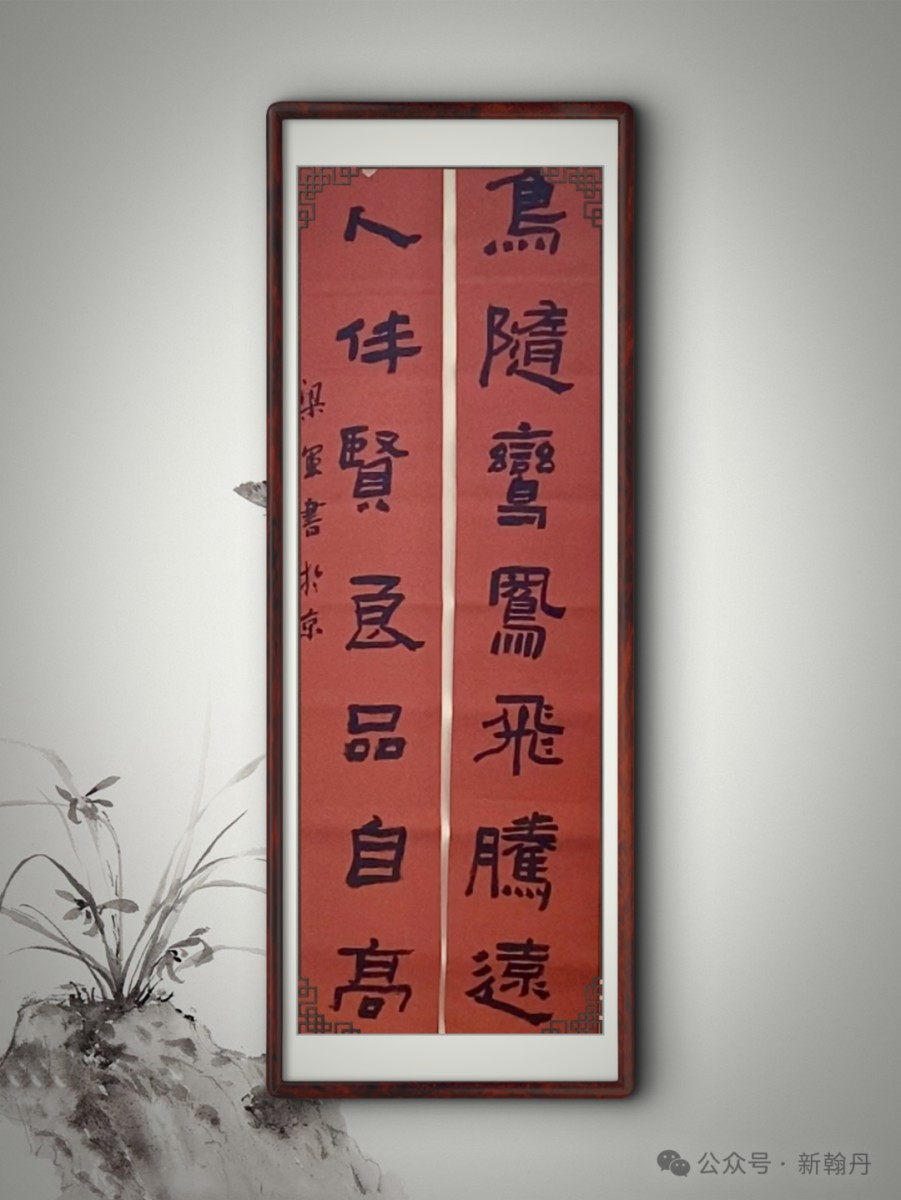 鳥隨鸞鳳飛騰遠
人伴賢良品自高
梁軍書於京
公众号·新翰丹